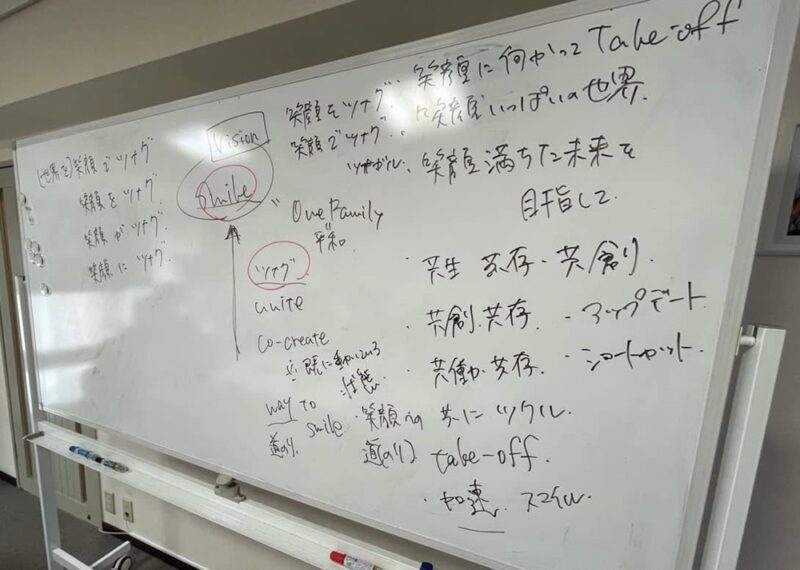 (世界を)笑顔でツナグ
笑顔をツナグ
笑顔がツナグ
笑顔にツナグ
Vision
Smile
One Family
平和
ツナグ
unite
co-create
※既に
way to
smile
道のり
笑顔をツナグ. 笑顔に向かって Take-off
笑顔でツナグ. 笑顔いっぱいの世界.
ツナガル. 笑顔満ちた未来を
目指して
・共生 共存・共創り.
・共創.共存. ・アップデート
・共働か共存. ・ショートカット.
・笑顔への 共にツクル.
道(のり) take-off.
・加速. スマイル.